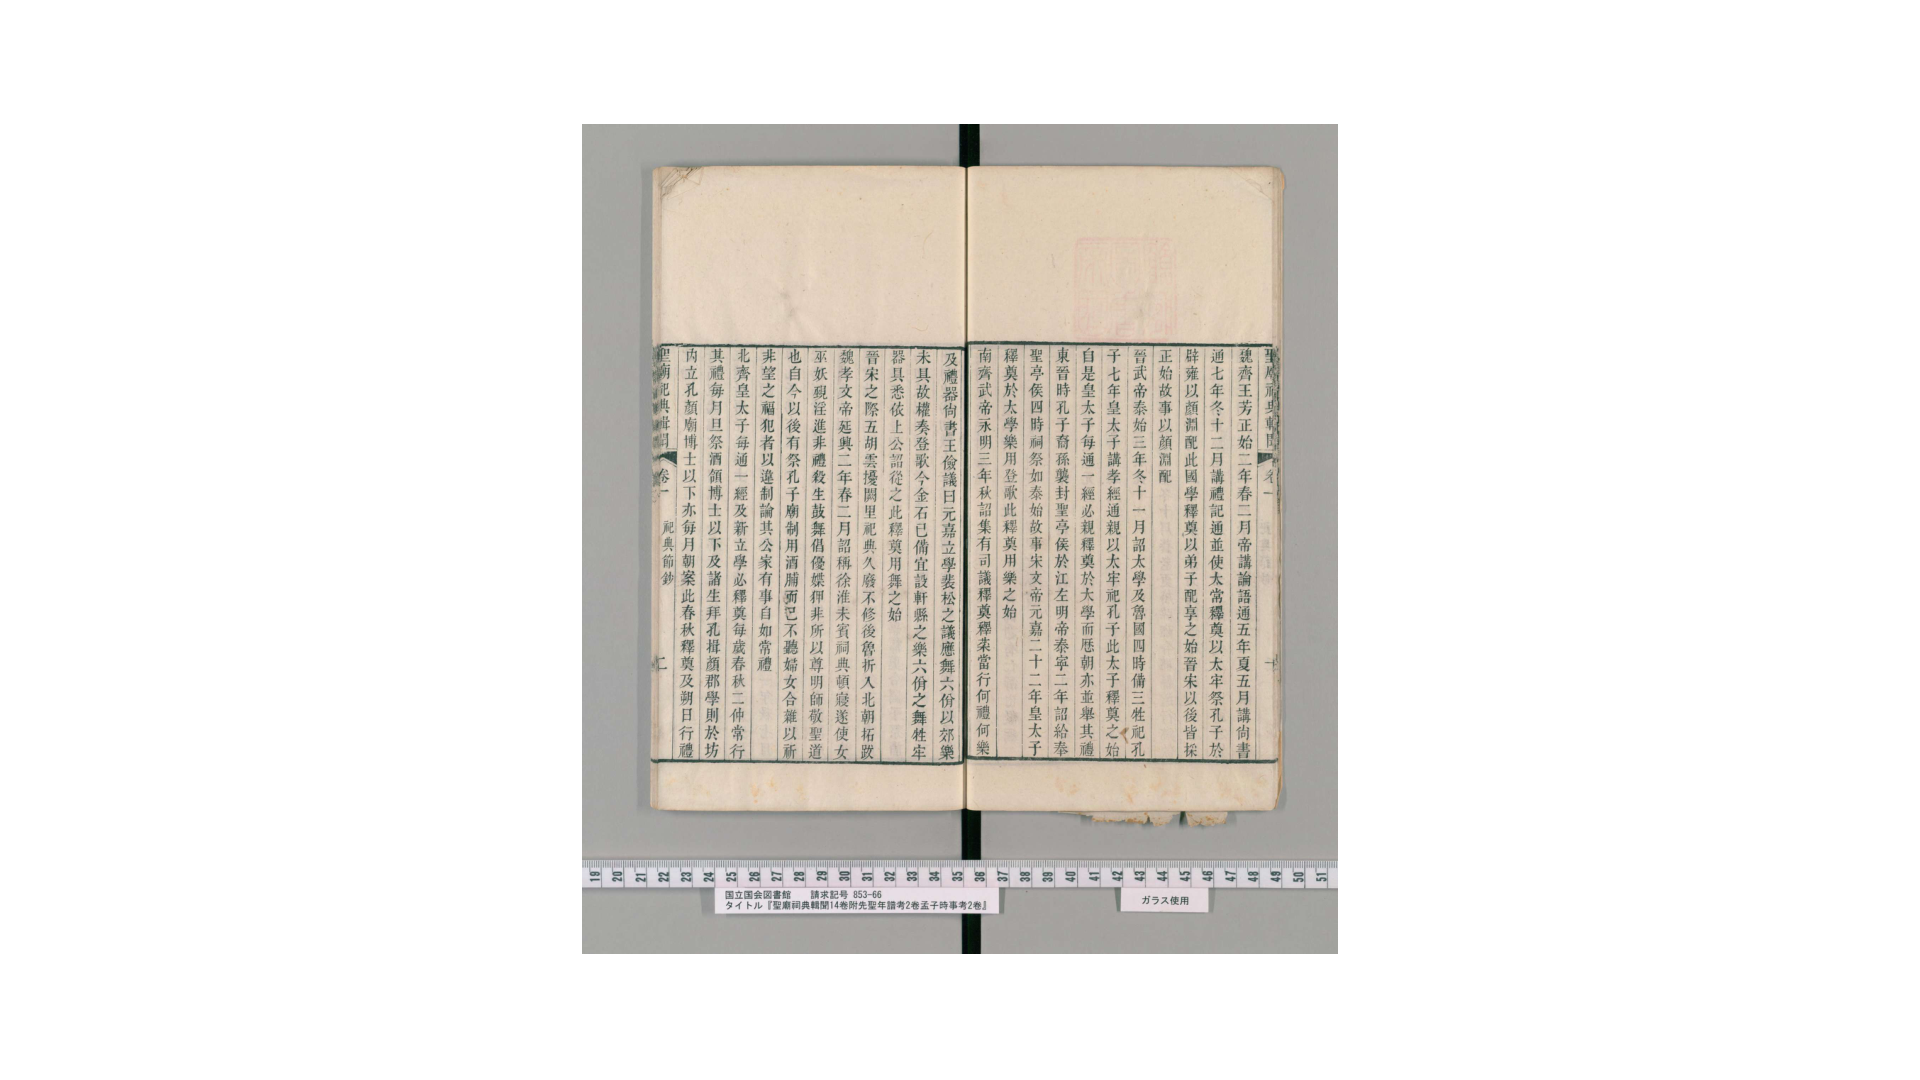 聖廟祀典輯聞 卷一
魏齊王芳正始二年春二月帝講論語通五年夏五月講尚書
通七年冬十二月講禮記通並使太常釋奠以太牢祭孔子於
辟雍以顏淵配此國學釋奠以弟子配享之始晉宋以後皆採
正始故事以顏淵配
晉武帝泰始三年冬十一月詔太學及魯國四時備三牲祀孔
子七年皇太子講孝經通親以太牢祀孔子此太子釋奠之始
自是皇太子每通一經必親釋奠於大學而歷朝亦並舉其禮
東晉時孔子裔孫襲封聖亭侯於江左明帝泰寧二年詔給奉
聖亭侯四時祠祭如泰始故事宋文帝元嘉二十二年皇太子
釋奠於太學樂用登歌此釋奠用樂之始
南齊武帝永明三年秋詔集有司議釋奠釋菜當行何禮何樂
及禮器尙書王儉議曰元嘉立學裴松之議應舞六佾以郊樂
未具故權奏登歌今金石已備宜設軒縣之樂六佾之舞牲牢
器具悉依上公詔從之此釋奠用舞之始
晉宋之際五胡雲擾闕里祀典久廢不修後魯折入北朝拓跋
魏孝文帝延興二年春二月詔稱徐淮未賓祠典頓寢遂使女
巫妖覡淫進非禮殺生鼓舞倡優媟狎非所以尊明師敬聖道
也自今以後有祭孔子廟制用酒脯而已不聽婦女合雜以祈
非望之福犯者以違制論其公家有事自如常禮
北齊皇太子每通一經及新立學必釋奠每歲春秋二仲常行
其禮每月旦祭酒領博士以下及諸生拜孔揖顏郡學則於坊
內立孔顏廟博士以下亦每月朝案此春秋釋奠及朔日行禮
聖廟祀典輯聞 卷一 祀典節鈔 二
19 20 21 22 23 24 25 26 27 28 29 30 31 32 33 34 35 36 37 38 39 40 41 42 43 44 45 46 47 48 49 50 51
国立国会図書館 請求記号 853-66
タイトル『聖廟祠典輯聞14巻附先聖年譜考2巻孟子時事考2巻』
ガラス使用